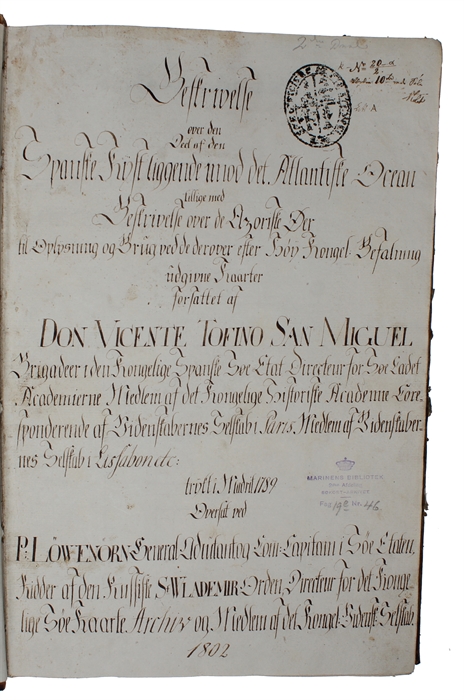 2den Deel
Beskrivelse
over den
Deel af den
Spanske Kyst liggende imod det Atlantiske Ocean
tillige med
Beskrivelse over de Azoriske Öer
til Oplysning og Brug ved de derover efter Höy Kongel. Befalning
udgivne Kaarter
forfattet af
DON VICENTE TOFINO SAN MIGUEL
Brigadeer i den Kongelige Spanske Söe Etat Directeur for Söe Cadet
Academierne Medlem af det Kongelige Historiske Academie Corre-
sponderende af Videnskabernes Selskab i Paris Medlem af Videnskaber-
nes Selskab i Lissabon etc:
trykt i Madrid 1789
Oversat ved
P: LÖWENÖRN General Adjutant og Com: Capitain i Söe Etaten,
Ridder af den Russiske St WLADEMIR Orden, Directeur for det Konge-
lige Söe Kaarte Archiv og Medlem af det Kongel. Vidensk: Selskab.
1802
MARINENS BIBLIOTEK
Fag 19e Nr. 46